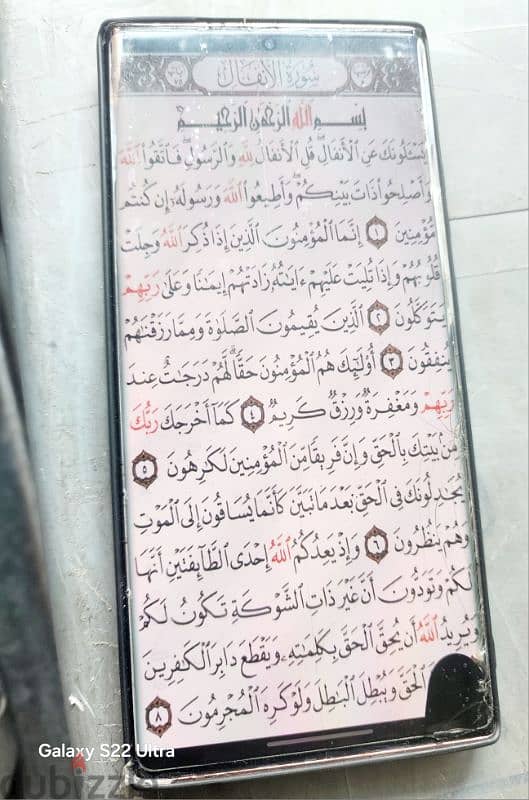 سُورَةُ الأَنفَالِ
بِسْمِ اللَّهِ الرَّحْمَٰنِ الرَّحِيمِ
يَسْـَٔلُونَكَ عَنِ ٱلْأَنفَالِ ۖ قُلِ ٱلْأَنفَالُ لِلَّهِ وَٱلرَّسُولِ ۖ فَٱتَّقُوا۟ ٱللَّهَ
وَأَصْلِحُوا۟ ذَاتَ بَيْنِكُمْ ۖ وَأَطِيعُوا۟ ٱللَّهَ وَرَسُولَهُۥٓ إِن كُنتُم
مُّؤْمِنِينَ ١ إِنَّمَا ٱلْمُؤْمِنُونَ ٱلَّذِينَ إِذَا ذُكِرَ ٱللَّهُ وَجِلَتْ
قُلُوبُهُمْ وَإِذَا تُلِيَتْ عَلَيْهِمْ ءَايَٰتُهُۥ زَادَتْهُمْ إِيمَٰنًا وَعَلَىٰ رَبِّهِمْ
يَتَوَكَّلُونَ ٢ ٱلَّذِينَ يُقِيمُونَ ٱلصَّلَوٰةَ وَمِمَّا رَزَقْنَٰهُمْ
يُنفِقُونَ ٣ أُو۟لَٰٓئِكَ هُمُ ٱلْمُؤْمِنُونَ حَقًّا ۚ لَّهُمْ دَرَجَٰتٌ عِندَ
رَبِّهِمْ وَمَغْفِرَةٌ وَرِزْقٌ كَرِيمٌ ٤ كَمَآ أَخْرَجَكَ رَبُّكَ
مِنۢ بَيْتِكَ بِٱلْحَقِّ وَإِنَّ فَرِيقًا مِّنَ ٱلْمُؤْمِنِينَ لَكَٰرِهُونَ ٥
يُجَٰدِلُونَكَ فِى ٱلْحَقِّ بَعْدَمَا تَبَيَّنَ كَأَنَّمَا يُسَاقُونَ إِلَى ٱلْمَوْتِ
وَهُمْ يَنظُرُونَ ٦ وَإِذْ يَعِدُكُمُ ٱللَّهُ إِحْدَى ٱلطَّآئِفَتَيْنِ أَنَّهَا
لَكُمْ وَتَوَدُّونَ أَنَّ غَيْرَ ذَاتِ ٱلشَّوْكَةِ تَكُونُ لَكُمْ
وَيُرِيدُ ٱللَّهُ أَن يُحِقَّ ٱلْحَقَّ بِكَلِمَٰتِهِۦ وَيَقْطَعَ دَابِرَ ٱلْكَٰفِرِينَ
ٱلْحَقَّ وَيُبْطِلَ ٱلْبَٰطِلَ وَلَوْ كَرِهَ ٱلْمُجْرِمُونَ ٨
Galaxy S22 Ultra
dubizzle